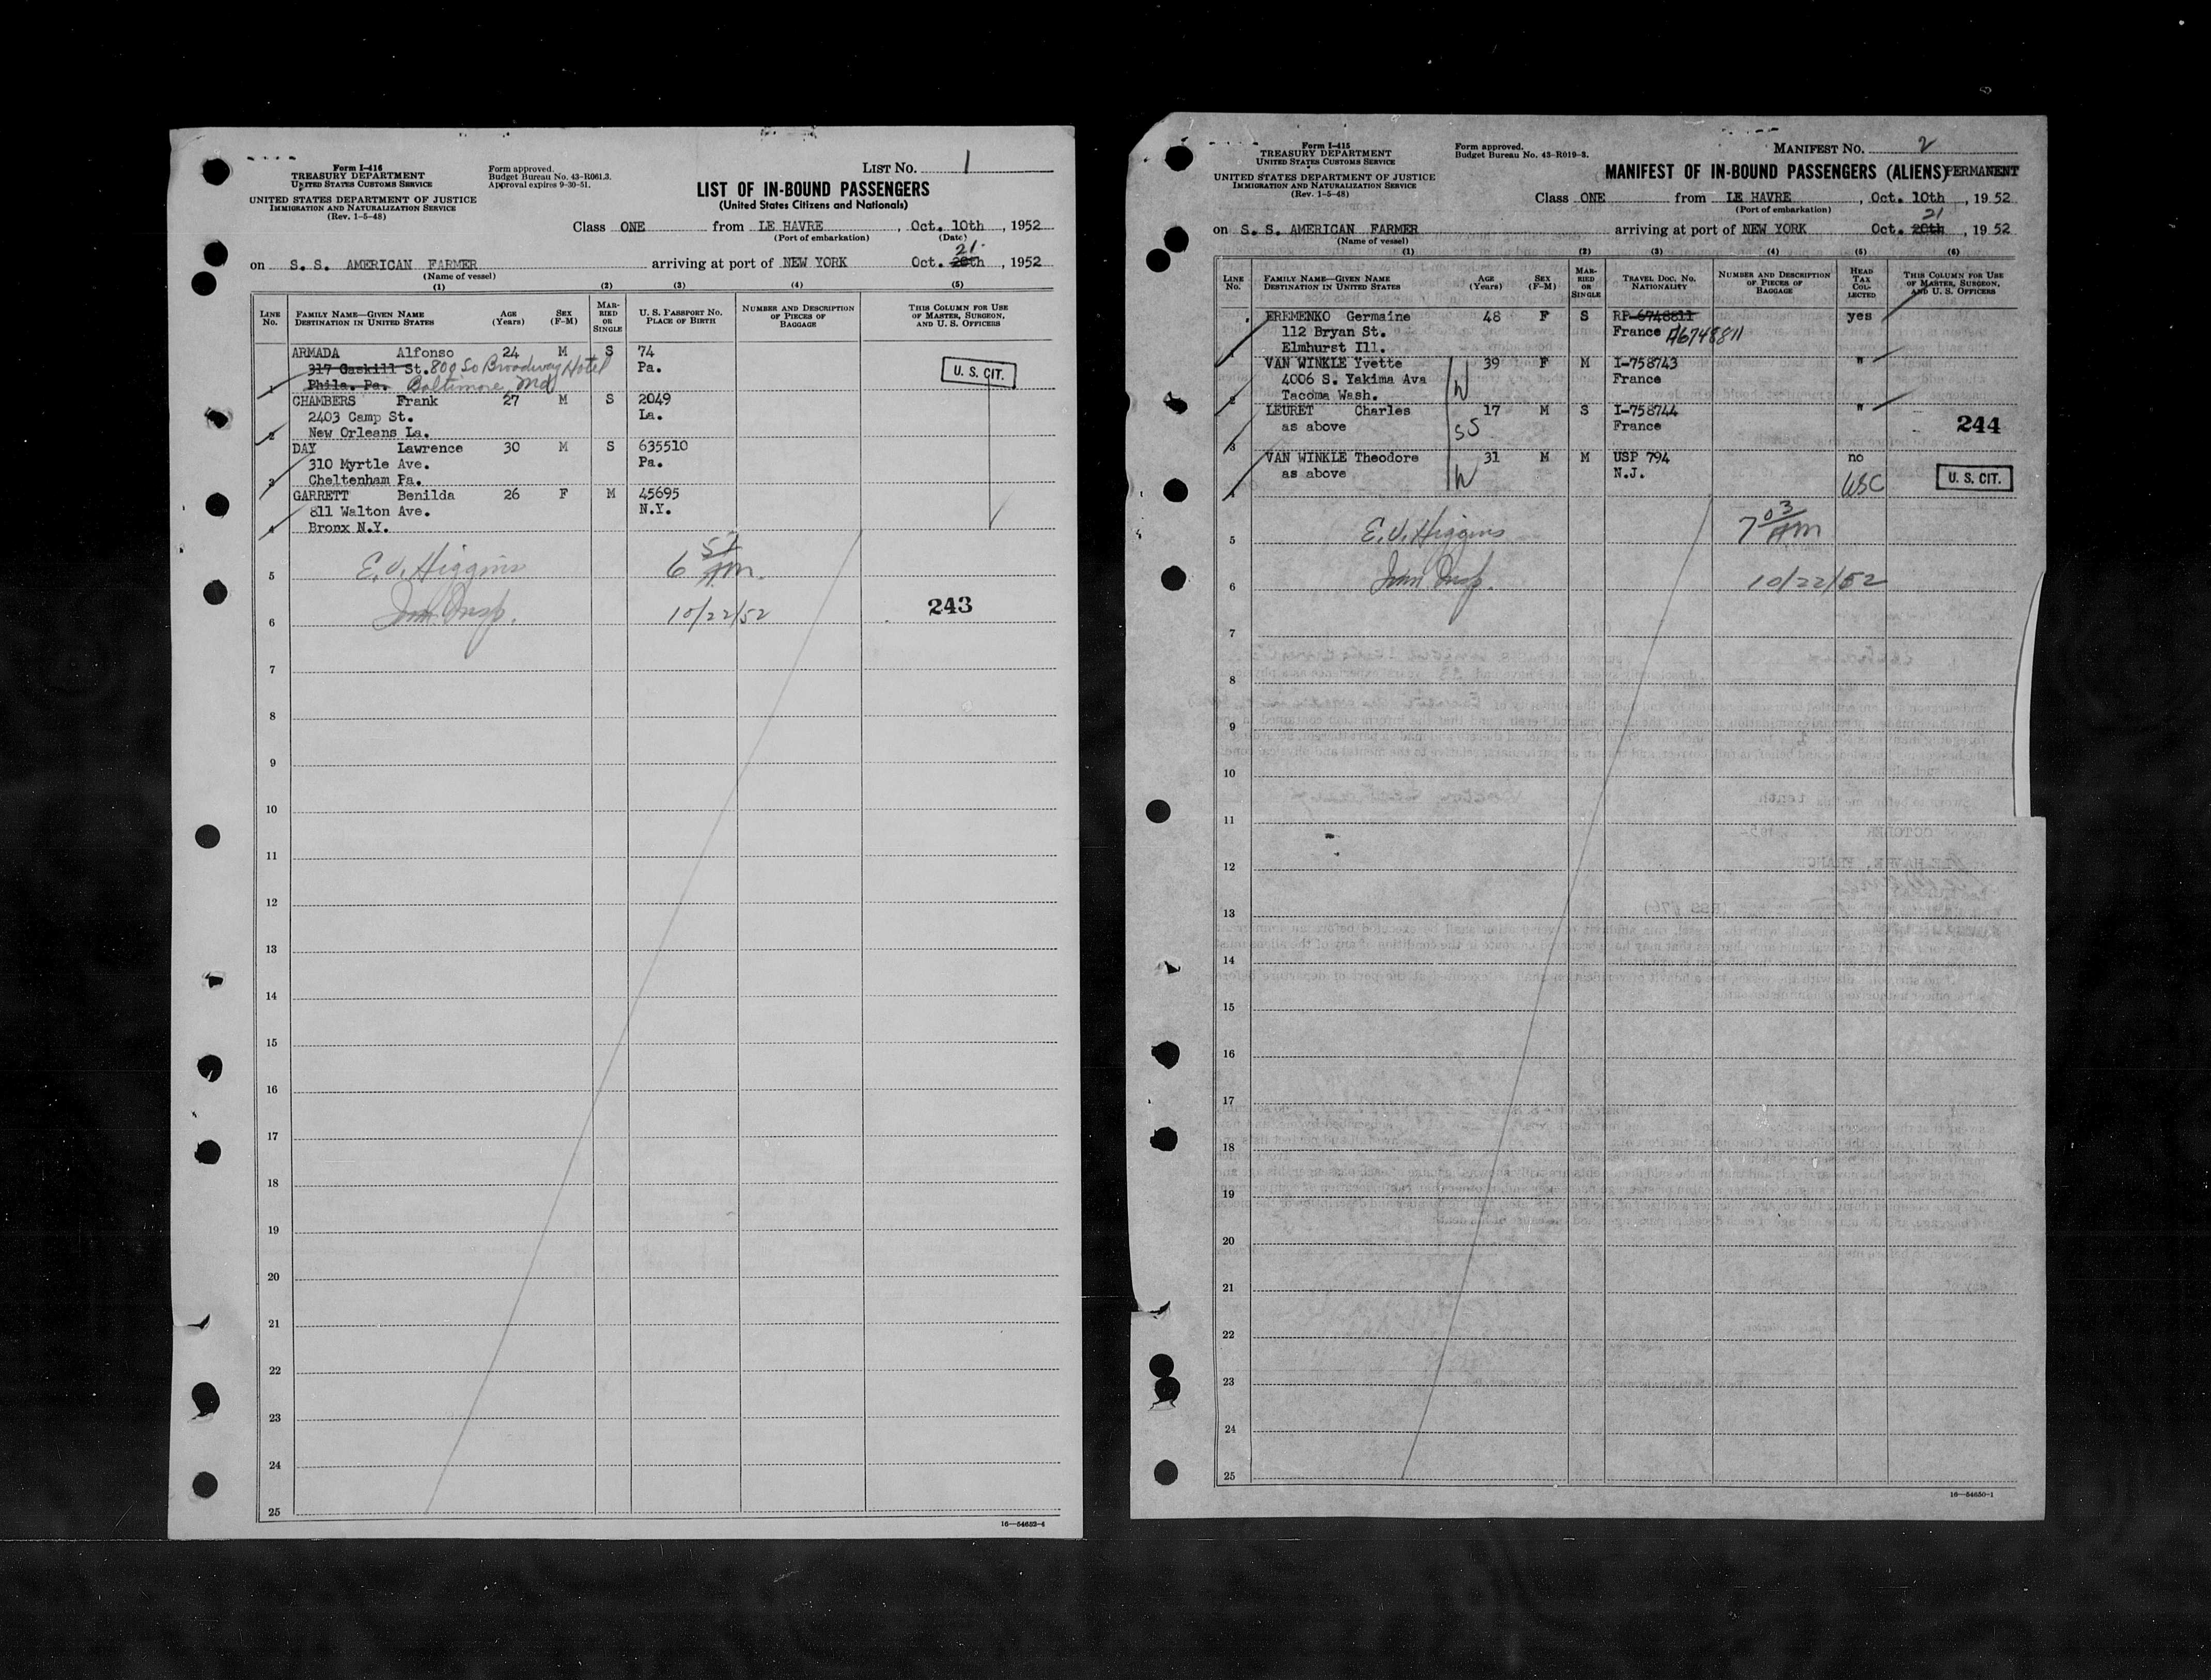 Form I-416
TREASURY DEPARTMENT
UNITED STATES CUSTOMS SERVICE
UNITED STATES DEPARTMENT OF JUSTICE
IMMIGRATION AND NATURALIZATION SERVICE
(Rev. 1-5-48)
Form approved.
Budget Bureau No. 43-R061.3.
Approval expires 9-30-51.
LIST NO. 1
LIST OF IN-BOUND PASSENGERS
(United States Citizens and Nationals)
Class ONE from LE HAVRE, Oct. 10th, 1952
(Port of embarkation) (Date)
21.
on S. S. AMERICAN FARMER arriving at port of NEW YORK Oct. 20th, 1952
(Name of vessel)
(1) (2) (3) (4) (5)
LINE NO. FAMILY NAME—GIVEN NAME DESTINATION IN UNITED STATES AGE (Years) SEX (F-M) MARRIED OR SINGLE U. S. PASSPORT NO. PLACE OF BIRTH NUMBER AND DESCRIPTION OF PIECES OF BAGGAGE THIS COLUMN FOR USE OF MASTER, SURGEON, AND U. S. OFFICERS
ARMADA Alfonso 24 M S 74
317 Gaskill St. 809 So Broadway Hotel Pa. U. S. CIT.
1 Phila. Pa. Baltimore Md
CHAMBERS Frank 27 M S 2049
2403 Camp St. La.
2 New Orleans La.
DAY Lawrence 30 M S 635510
310 Myrtle Ave. Pa.
3 Cheltenham Pa.
GARRETT Benilda 26 F M 45695
811 Walton Ave. N.Y.
4 Bronx N.Y.
5 E. V. Higgins 6 51 AM.
6 Imm. Insp. 10/22/52 243
7
8
9
10
11
12
13
14
15
16
17
18
19
20
21
22
23
24
25
16—54652-4
Form I-415
TREASURY DEPARTMENT
UNITED STATES CUSTOMS SERVICE
UNITED STATES DEPARTMENT OF JUSTICE
IMMIGRATION AND NATURALIZATION SERVICE
(Rev. 1-5-48)
Form approved.
Budget Bureau No. 43-R019-3.
MANIFEST NO. 2
MANIFEST OF IN-BOUND PASSENGERS (ALIENS) PERMANENT
Class ONE from LE HAVRE, Oct. 10th, 1952
(Port of embarkation)
21
on S. S. AMERICAN FARMER arriving at port of NEW YORK Oct. 20th, 1952
(Name of vessel)
(1) (2) (3) (4) (5) (6)
LINE NO. FAMILY NAME—GIVEN NAME DESTINATION IN UNITED STATES AGE (Years) SEX (F-M) MARRIED OR SINGLE TRAVEL DOC. NO. NATIONALITY NUMBER AND DESCRIPTION OF PIECES OF BAGGAGE HEAD TAX COLLECTED THIS COLUMN FOR USE OF MASTER, SURGEON, AND U. S. OFFICERS
EREMENKO Germaine 48 F S RP 6748811 yes
112 Bryan St. France A6748811
1 Elmhurst Ill.
VAN WINKLE Yvette 39 F M I-758743 "
4006 S. Yakima Ava W France
2 Tacoma Wash.
LEURET Charles 17 M S I-758744 "
as above SS France 244
3
VAN WINKLE Theodore 31 M M USP 794 no
as above W N.J. USC U. S. CIT.
4
5 E. V. Higgins 7 03 AM
6 Imm. Insp. 10/22/52
7
8
9
10
11
12
13
14
15
16
17
18
19
20
21
22
23
24
25
16—54650-1